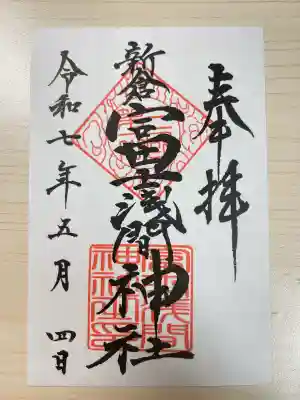 奉拝
新倉富士浅間神社
令和七年五月四日